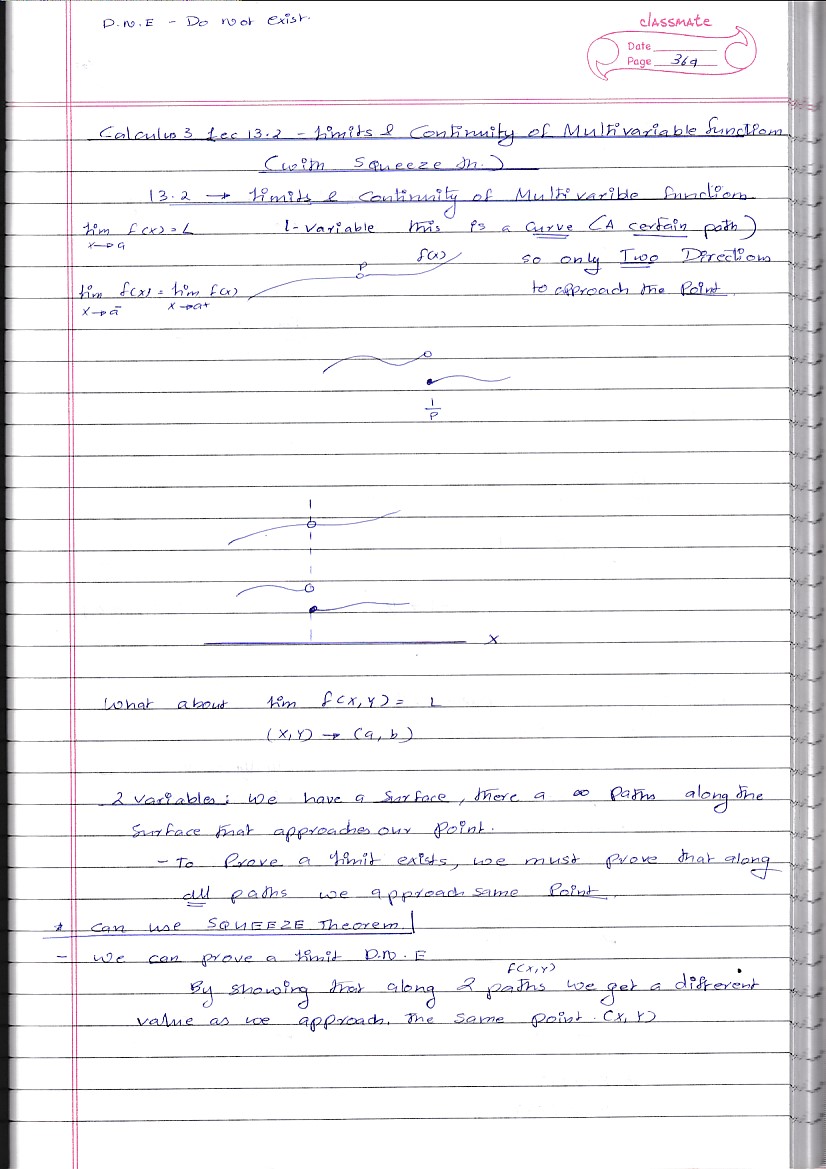 D.N.E - Do not exist.
classmate
Date
Page 369
Calculus 3 Lec 13.2 - Limits & Continuity of Multivariable function
(with Squeeze th.)
13.2 → Limits & Continuity of Multivarible function
lim f(x) = L 1-variable this is a Curve (A certain path)
x→a
f(x) so only Two Directiom
P
lim f(x) = lim f(x) to approach the Point.
x→a⁻ x→a+
P
x
What about lim f(x,y) = L
(x,y) → (a,b)
2 variables: we have a surface, there a ∞ paths along the
surface that approaches our point.
- To Prove a limit exists, we must prove that along
all paths we approach same Point.
* Can use SQUEEZE Theorem!
- We can prove a limit D.N.E
f(x,y)
By showing that along 2 paths we get a different
value as we approach the same point. (x,y)